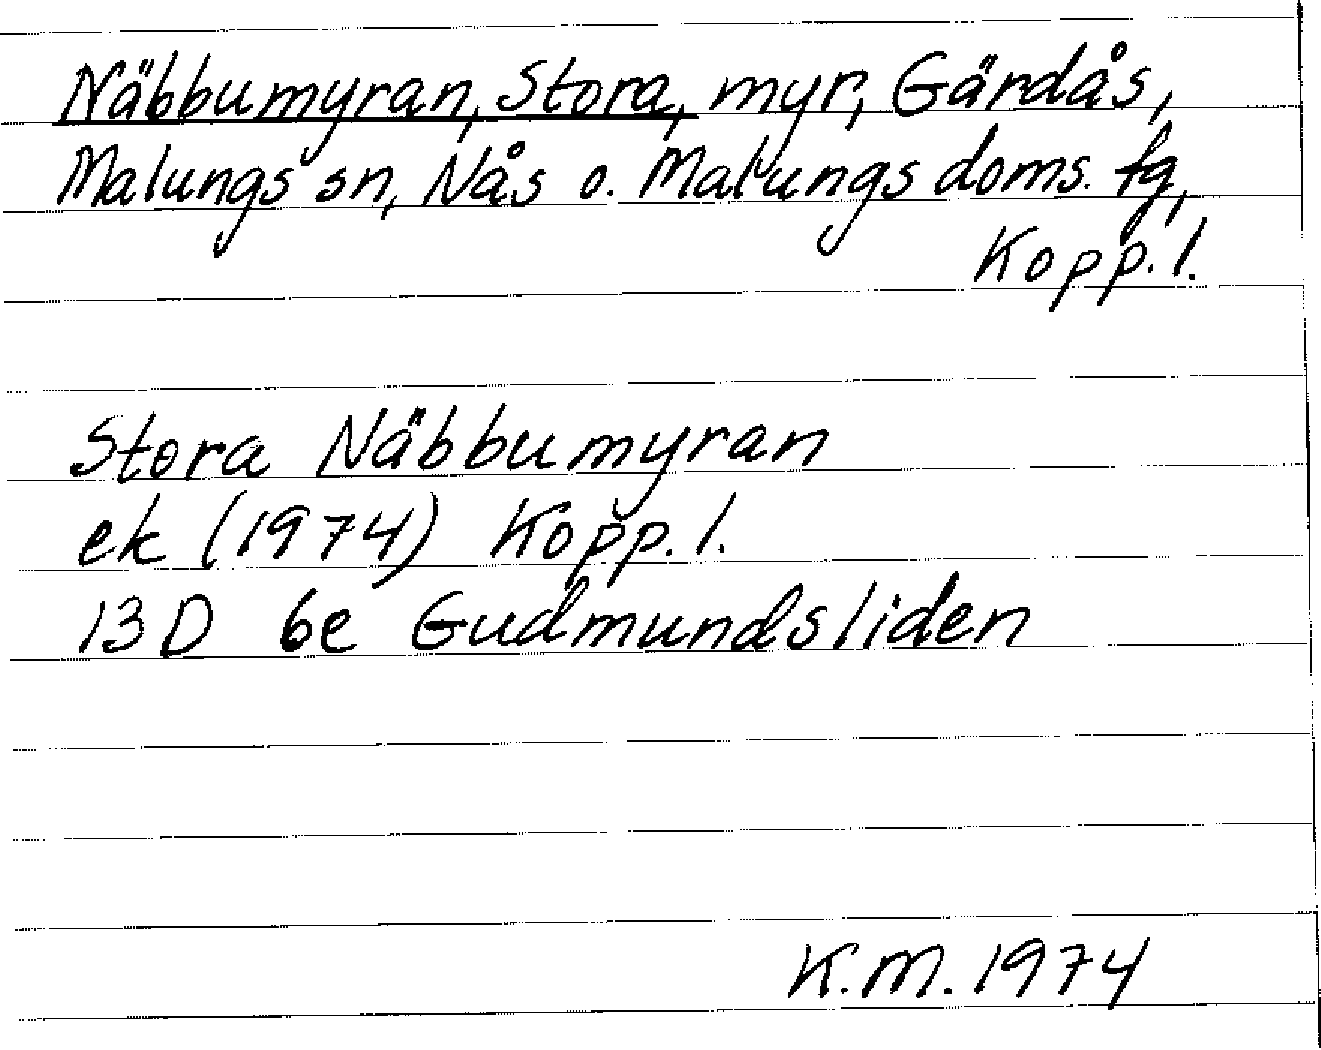 Näbbumyran, Stora, myr, Gärdås,
Malungs sn, Nås o. Malungs doms. fg,
Kopp. l.
Stora Näbbumyran
ek (1974) Kopp. l.
13D 6e Gudmundsliden
K.M. 1974